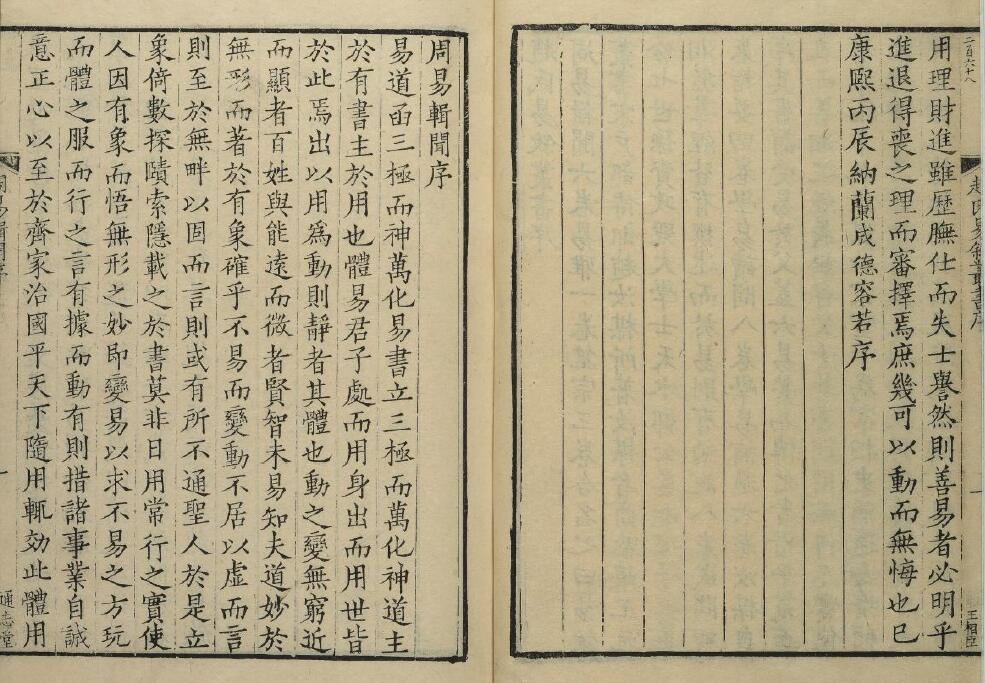 二百六十八
用理財進雖歷膴仕而失士譽然則善易者必明乎
進退得喪之理而審擇焉庶幾可以動而無悔也已
康熙丙辰納蘭成德容若序
王相臣
周易輯聞序
易道函三極而神萬化易書立三極而萬化神道主
於有書主於用也體易君子處而用身出而用世皆
於此焉出以用為動則靜者其體也動之變無窮近
而顯者百姓與能遠而微者賢智未易知夫道妙於
無形而著於有象確乎不易而變動不居以虛而言
則至於無畔以固而言則或有所不通聖人於是立
象倚數探賾索隱載之於書莫非日用常行之實使
人因有象而悟無形之妙即變易以求不易之方玩
而體之服而行之言有據而動有則措諸事業自誠
意正心以至於齊家治國平天下隨用輒効此體用
一
通志堂